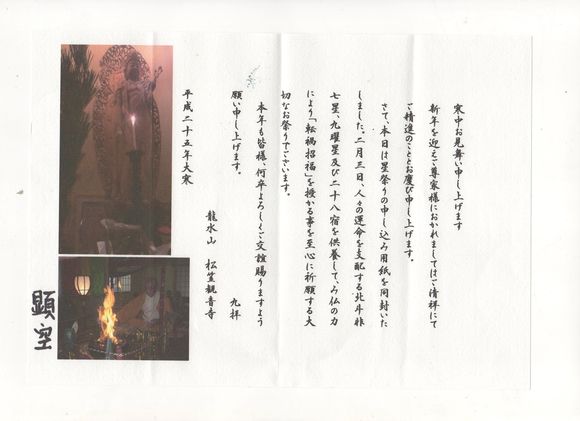 寒中お見舞い申し上げます
新年を迎えご尊家様におかれましてはご清祥にて
ご精進のこととお慶び申し上げます。
さて、本日は星祭りの申し込み用紙を同封いた
しました。二月三日、人々の運命を支配する北斗
七星、九曜星及び二十八宿を供養して、み仏の力
により「転禍招福」を授かる事を至心に祈願する大
切なお祭りでございます。
本年も皆様、何卒よろしくご交誼賜りますよう
願い申し上げます。
九拝
龍水山 松笠観音寺
平成二十五年大寒
顕空